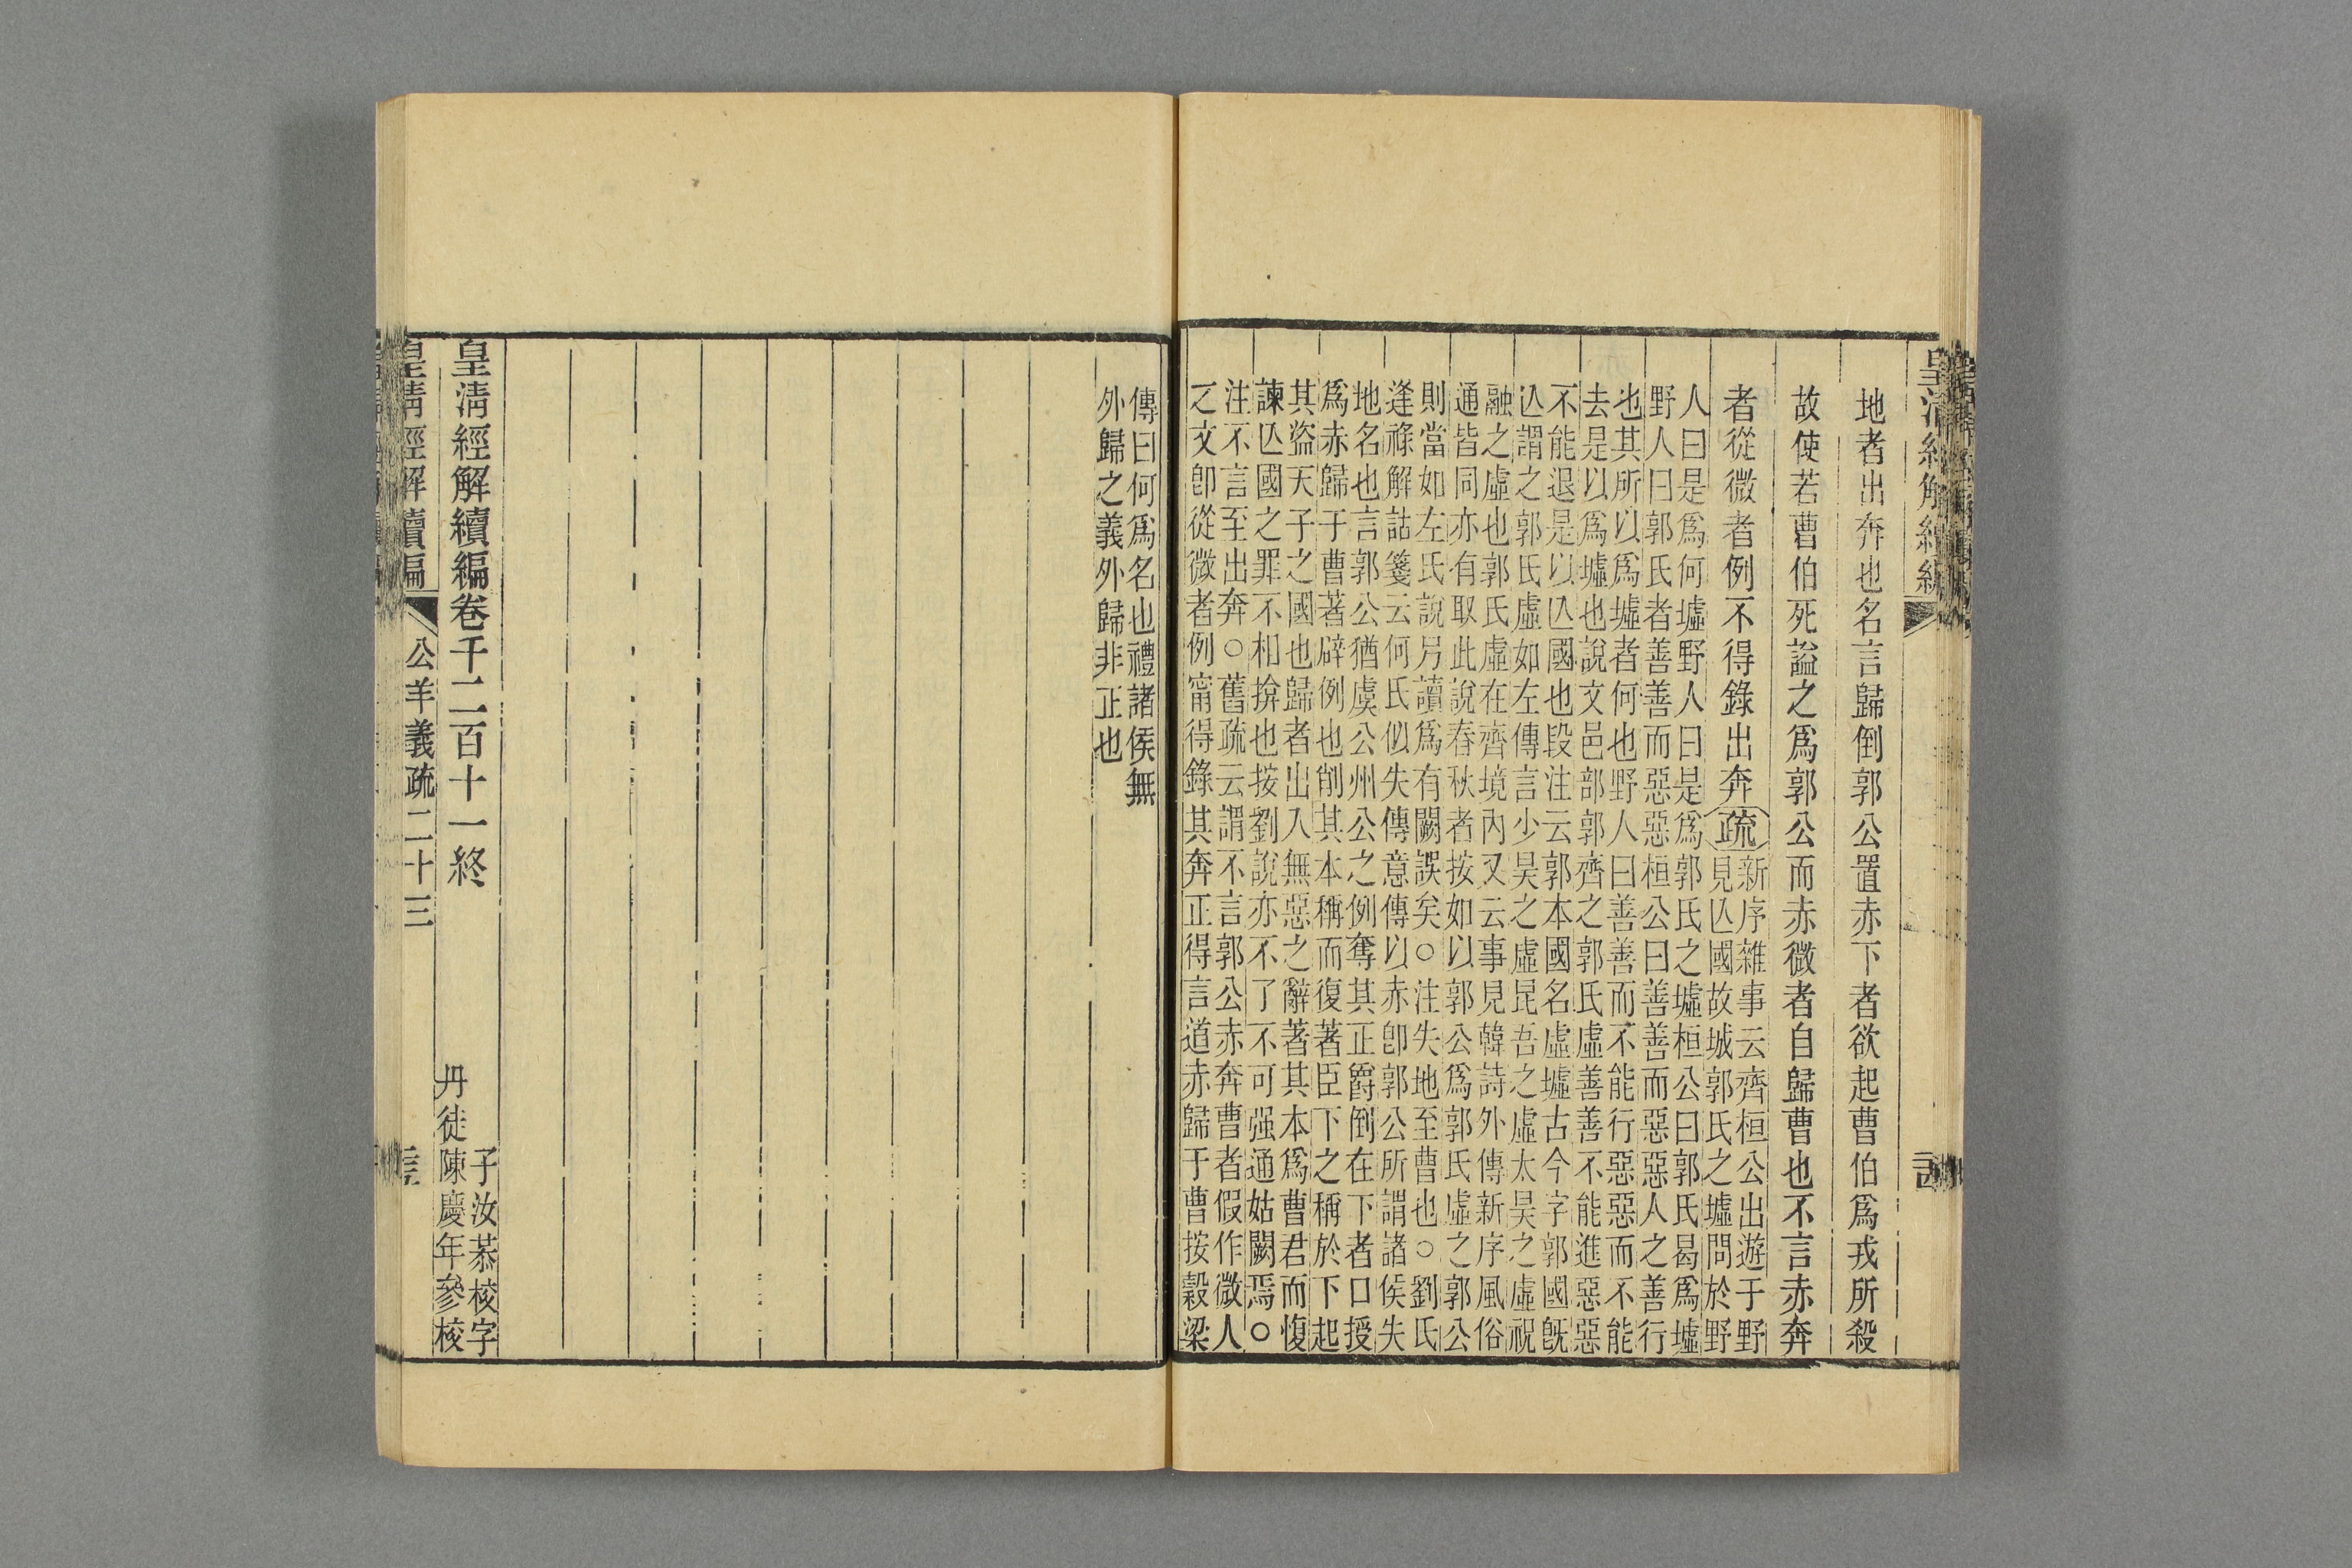 地者出奔也名言歸倒郭公置赤下者欲起曹伯爲戎所殺
故使若曹伯死諡之爲郭公而赤微者自歸曹也不言赤奔
者從微者例不得錄出奔疏
新序雜事云齊桓公出遊于野
見亾國故城郭氏之墟問於野
人曰是爲何墟野人曰是爲郭氏之墟桓公曰郭氏曷爲墟
野人曰郭氏者善善而惡惡桓公曰善善而惡惡人之善行
也其所以爲墟者何也野人曰善善而不能行惡惡而不能
去是以爲墟也說文邑部郭齊之郭氏虛善善不能進惡惡
不能退是以亾國也段注云郭本國名虛墟古今字郭國旣
亾謂之郭氏虛如左傳言少昊之虛昆吾之虛太昊之虛祝
融之虛也郭氏虛在齊境內又云事見韓詩外傳新序風俗
通皆同亦有取此說春秋者按如以郭公爲郭氏虛之郭公
則當如左氏說另讀爲有闕誤矣○注失地至曹也○劉氏
逢祿解詁箋云何氏似失傳意傳以赤卽郭公所謂諸侯失
地名也言郭公猶虞公州公之例奪其正爵倒在下者口授
爲赤歸于曹著辟例也削其本稱而復著臣下之稱於下起
其盜天子之國也歸者出入無惡之辭著其本爲曹君而愎
諫亾國之罪不相揜也按劉說亦不了不可强通姑闕焉○
注不言至出奔○舊疏云謂不言郭公赤奔曹者假作微人
之文卽從微者例甯得錄其奔正得言道赤歸于曹按穀梁
傳曰何爲名也禮諸侯無
外歸之義外歸非正也
皇淸經解續編卷千二百十一終
子汝恭校字
丹徒陳慶年參校
皇淸經解續編
公羊義疏二十三